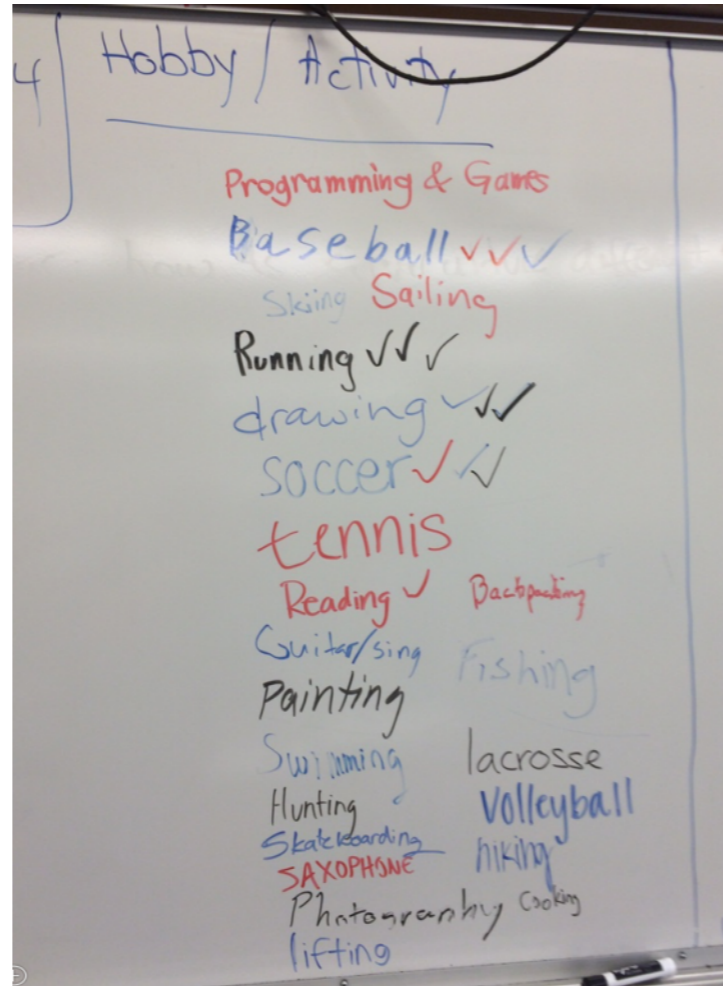 4 Hobby / Activity
Programming & Games
Baseball ✓ ✓ ✓
Skiing Sailing
Running ✓ ✓ ✓
drawing ✓ ✓ ✓
soccer ✓ ✓ ✓
tennis
Reading ✓ Backpacking
Guitar/sing Fishing
Painting
Swimming lacrosse
Hunting Volleyball
Skateboarding hiking
SAXOPHONE
Photography Cooking
lifting